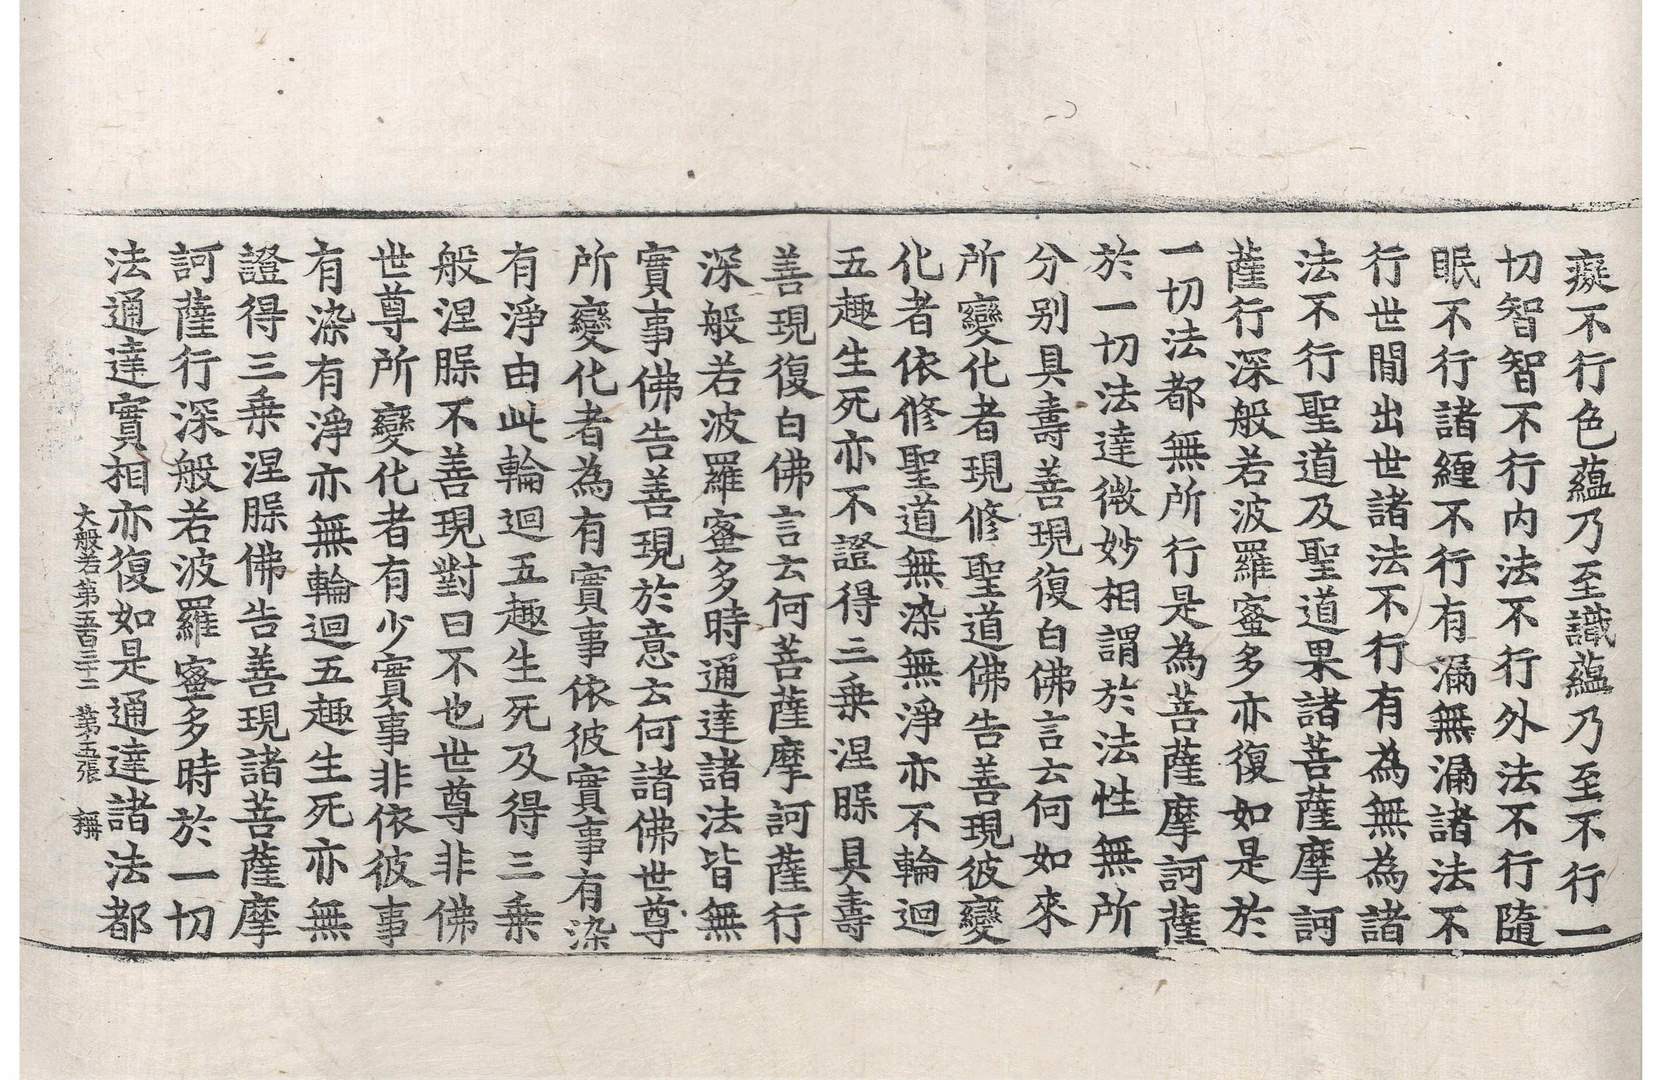 癡不行色蘊乃至識蘊乃至不行一
切智智不行内法不行外法不行隨
眠不行諸纏不行有漏無漏諸法不
行世間出世諸法不行有為無為諸
法不行聖道及聖道果諸菩薩摩訶
薩行深般若波羅蜜多亦復如是於
一切法都無所行是為菩薩摩訶薩
於一切法達微妙相謂於法性無所
分别具壽善現復白佛言云何如來
所變化者現修聖道佛告善現彼變
化者依修聖道無染無淨亦不輪迴
五趣生死亦不證得三乗涅槃具壽
善現復白佛言云何菩薩摩訶薩行
深般若波羅蜜多時通達諸法皆無
實事佛告善現於意云何諸佛世尊
所變化者為有實事依彼實事有染
有淨由此輪迴五趣生死及得三乗
般涅槃不善現對曰不也世尊非佛
世尊所變化者有少實事非依彼事
有染有淨亦無輪迴五趣生死亦無
證得三乗涅槃佛告善現諸菩薩摩
訶薩行深般若波羅蜜多時於一切
法通達實相亦復如是通達諸法都
大般若第五百三十二 第五張 稱